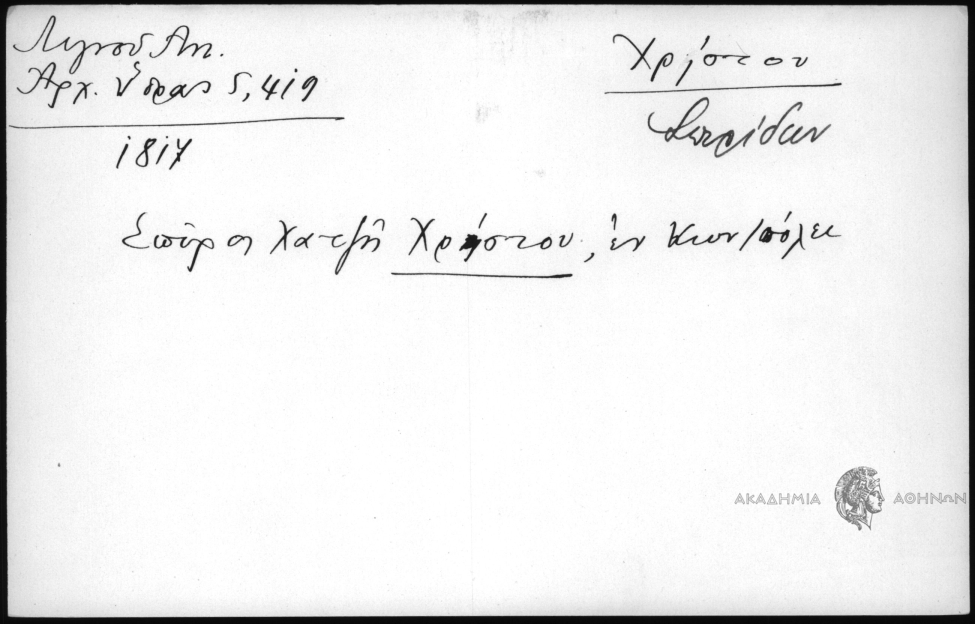 Λιγνοῦ Αντ.
Αρχ. Ὕδρας 5, 419
1817
Χρήστου
Σπυρίδων
Σπῦρος Χατζῆ Χρήστου, ἐν Κων/πόλει
ΑΚΑΔΗΜΙΑ ΑΘΗΝΩΝ